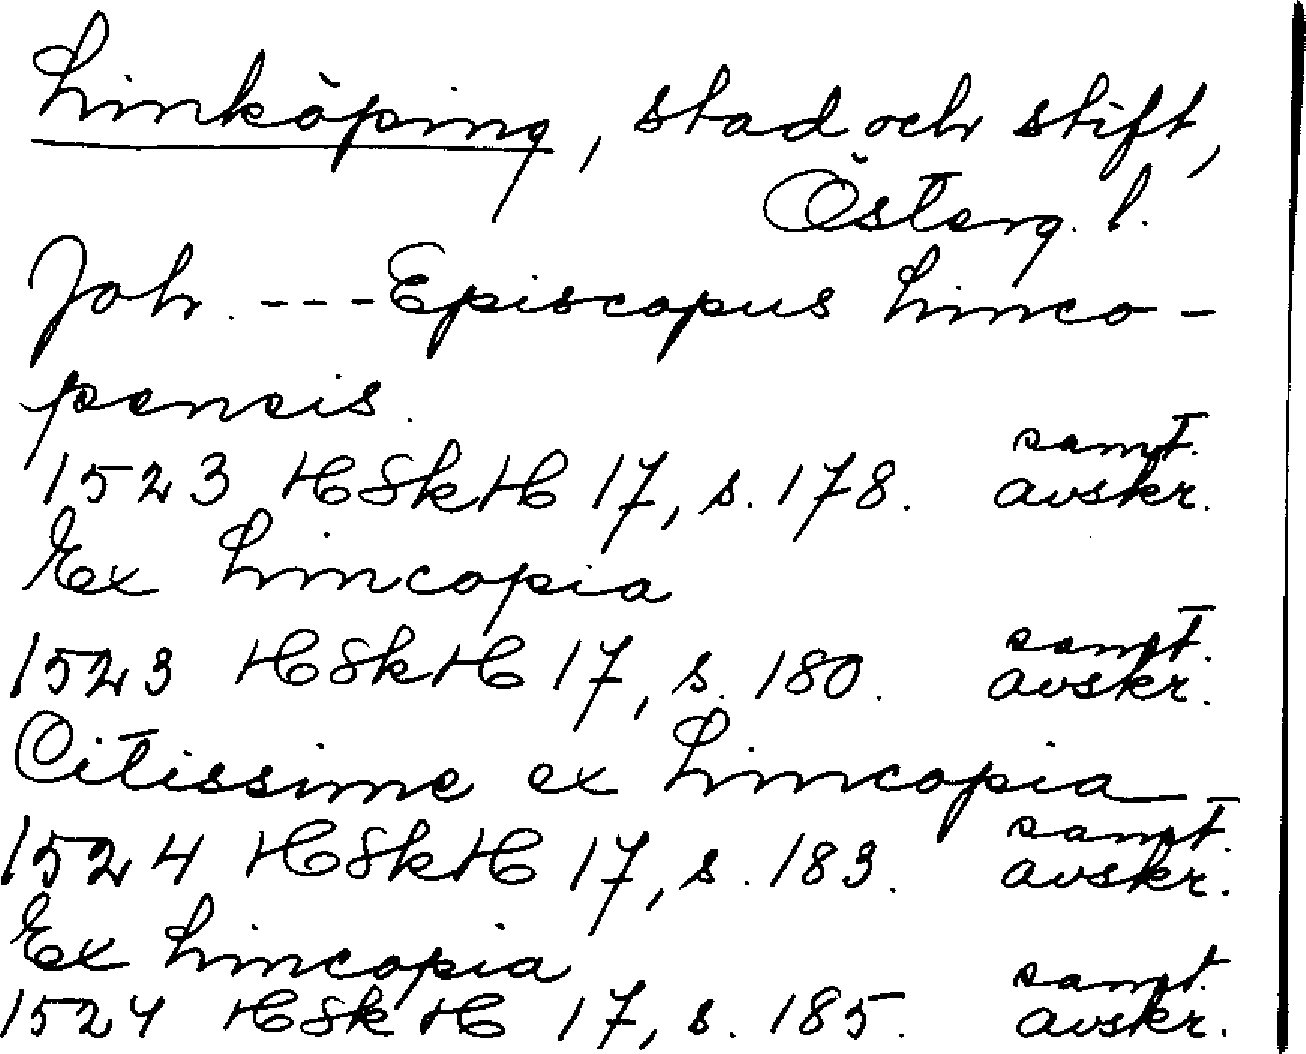 Linköping, stad och stift,
Österg. l.
Joh. --- Episcopus Linco-
pensis.
1523 HSkH 17, s. 178. samt. avskr.
Ex Lincopia
1523 HSkH 17, s. 180. samt. avskr.
Citissime ex Lincopia
1524 HSkH 17, s. 183. samt. avskr.
Ex Lincopia
1524 HSkH 17, s. 185. samt. avskr.